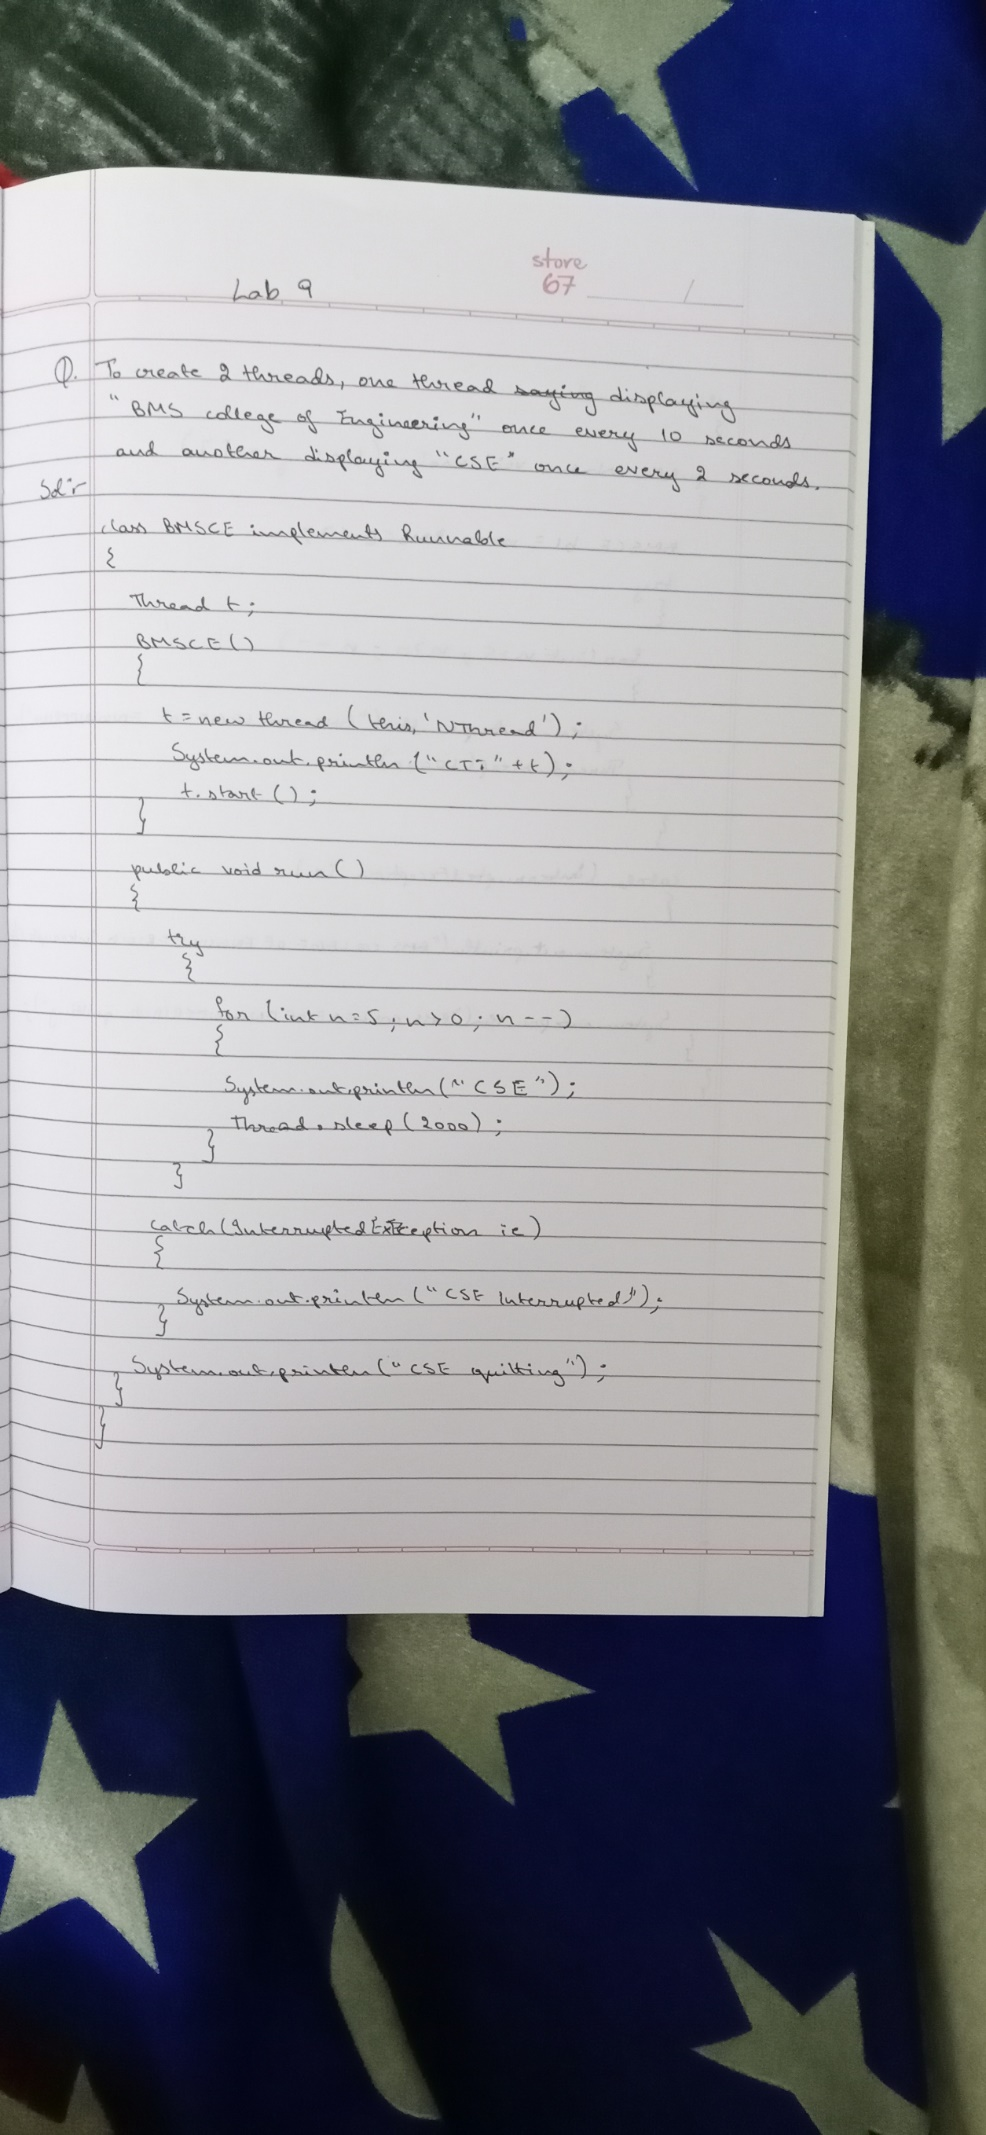 Lab 9
store
67
Q. To create 2 threads, one thread saying displaying
"BMS college of Engineering" once every 10 seconds
and another displaying "CSE" once every 2 seconds.
Sol:
class BMSCE implements Runnable
{
Thread t;
BMSCE()
{
t = new thread (this, 'NThread');
System.out.println ("CT:" + t);
t. start ();
}
public void run()
{
try
{
for (int n=5; n>0; n--)
{
System.out.println("CSE");
Thread.sleep(2000);
}
}
catch(InterruptedException ie)
{
System.out.println ("CSE Interrupted");
}
System.out.println ("CSE quitting");
}
}